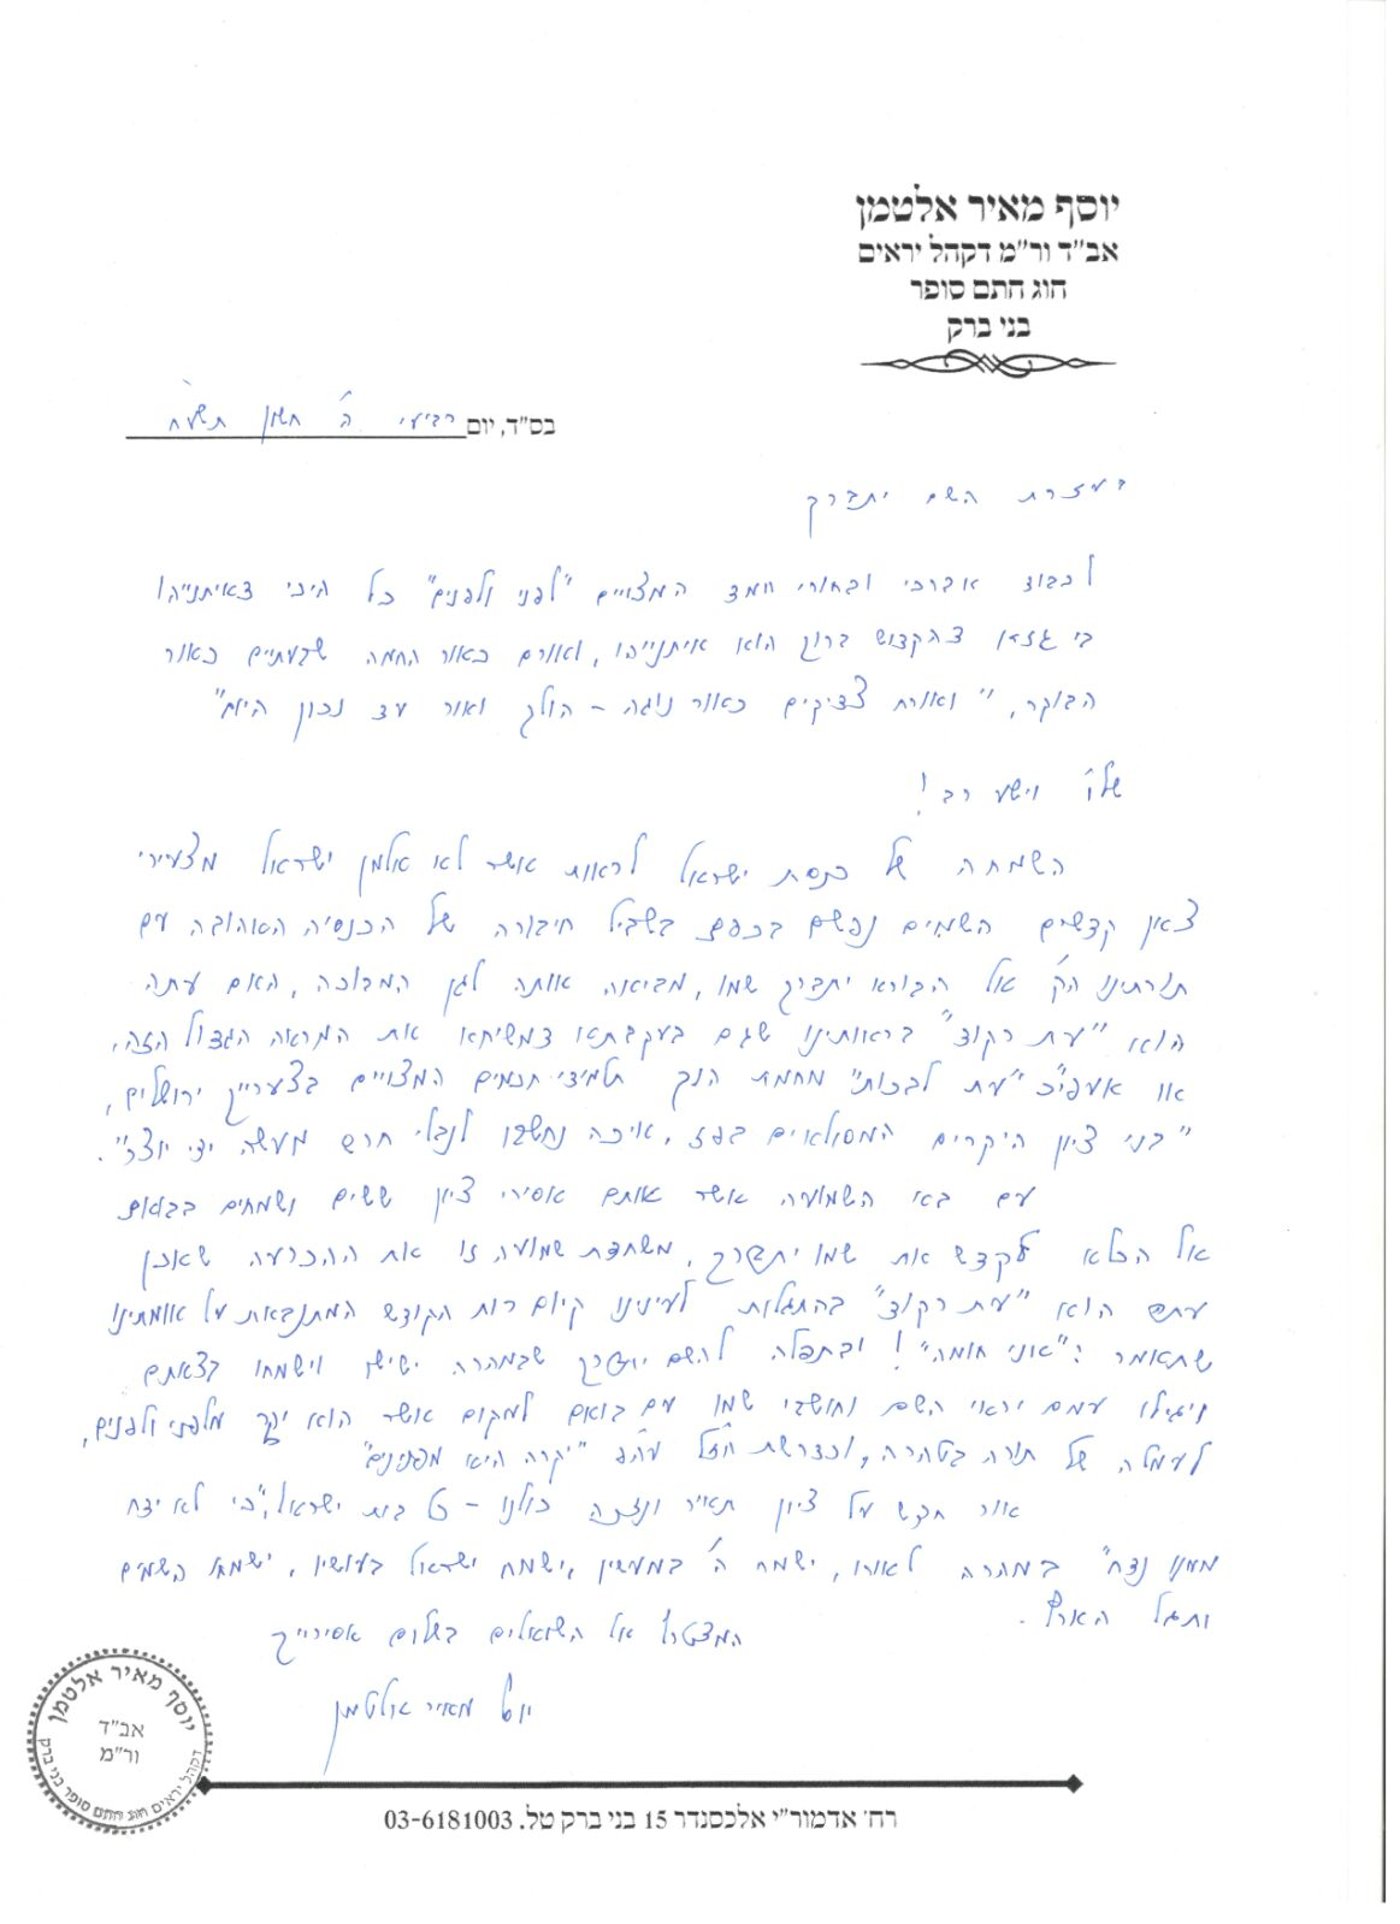 יוסף מאיר אלטמן
אב"ד ור"מ דקהל יראים
חוג חתם סופר
בני ברק
בס"ד, יום רביעי ה' חשון תשע"ח
בעזרת השם יתברך
לכבוד אברכי ובחורי חמד המצויים "לפני ולפנים" כל היכי דאיתנייהו
בי גזזא דהקדוש ברוך הוא איתנייהו, ואורם כאור החמה שבעתיים כאור
הבוקר, "ואורח צדיקים כאור נוגה - הולך ואור עד נכון היום"
שלו' וישע רב!
השמחה של כנסת ישראל לראות אשר לא אלמן ישראל מצעירי
צאן קדשים השמים נפשם בכפם בשביל חיבורה של הכנסיה האהובה עם
תורתינו הק' אל הבורא יתברך שמו, מביאה אותה לגן המבוכה, האם עתה
הוא "עת רקוד" בראותינו שגם בעקבתא דמשיחא את המראה הגדול הזה,
או אעפי"כ "עת לבכות" מחמת הנך תלמידי חכמים המצויים בצערייך ירושלים,
"בני ציון היקרים המסולאים בפז, איכה נחשבו לנבלי חרש מעשה ידי יוצר".
עם באי השמועה אשר אותם אסירי ציון ששים ושמחים בבואם
אל הכלא לקדש את שמו יתברך, משחדת שמועה זו את ההכרעה שאכן
עתה הוא "עת רקוד" בהתגלות לעינינו קיום רוח הקודש המתנבאת על אומתינו
שתאמר: "אני חומה"! ובתפלה להשם יתברך שבמהרה ישישו וישמחו בצאתם
ויגילו עמם יראי השם וחושבי שמו עם בואם למקום אשר הוא יקר מלפני ולפנים,
לעמלה של תורה בטהרה, וכדרשת חז"ל עה"פ "יקרה היא מפנינים"
אור חדש על ציון תאיר ונזכה כולנו - כל בית ישראל, "כי לא ידח
ממנו נדח" במהרה לאורו, ישמח ה' במעשיו, ישמח ישראל בעושיו, ישמחו השמים
ותגל הארץ.
המצטרף אל השואלים בשלום אסירייך
יוסף מאיר אלטמן
יוסף מאיר אלטמן
אב"ד
ור"מ
דקהל יראים חוג חתם סופר בני ברק
רח' אדמור"י אלכסנדר 15 בני ברק טל. 03-6181003